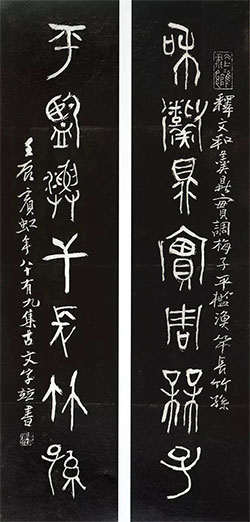 釋文和羹鼎實調梅子平檻漁竿長竹孫
和羹鼎實周某子
平監漁干長竹孫
壬辰賓虹年八十有九集古文字竝書